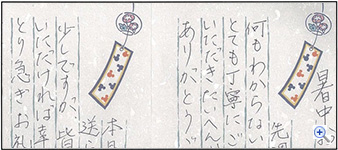 暑中お
先
何もわからない
とても丁寧にご
いただきたいへん
ありがとうご
本日
送
少しですが、皆
いただければ幸
とり急ぎお礼